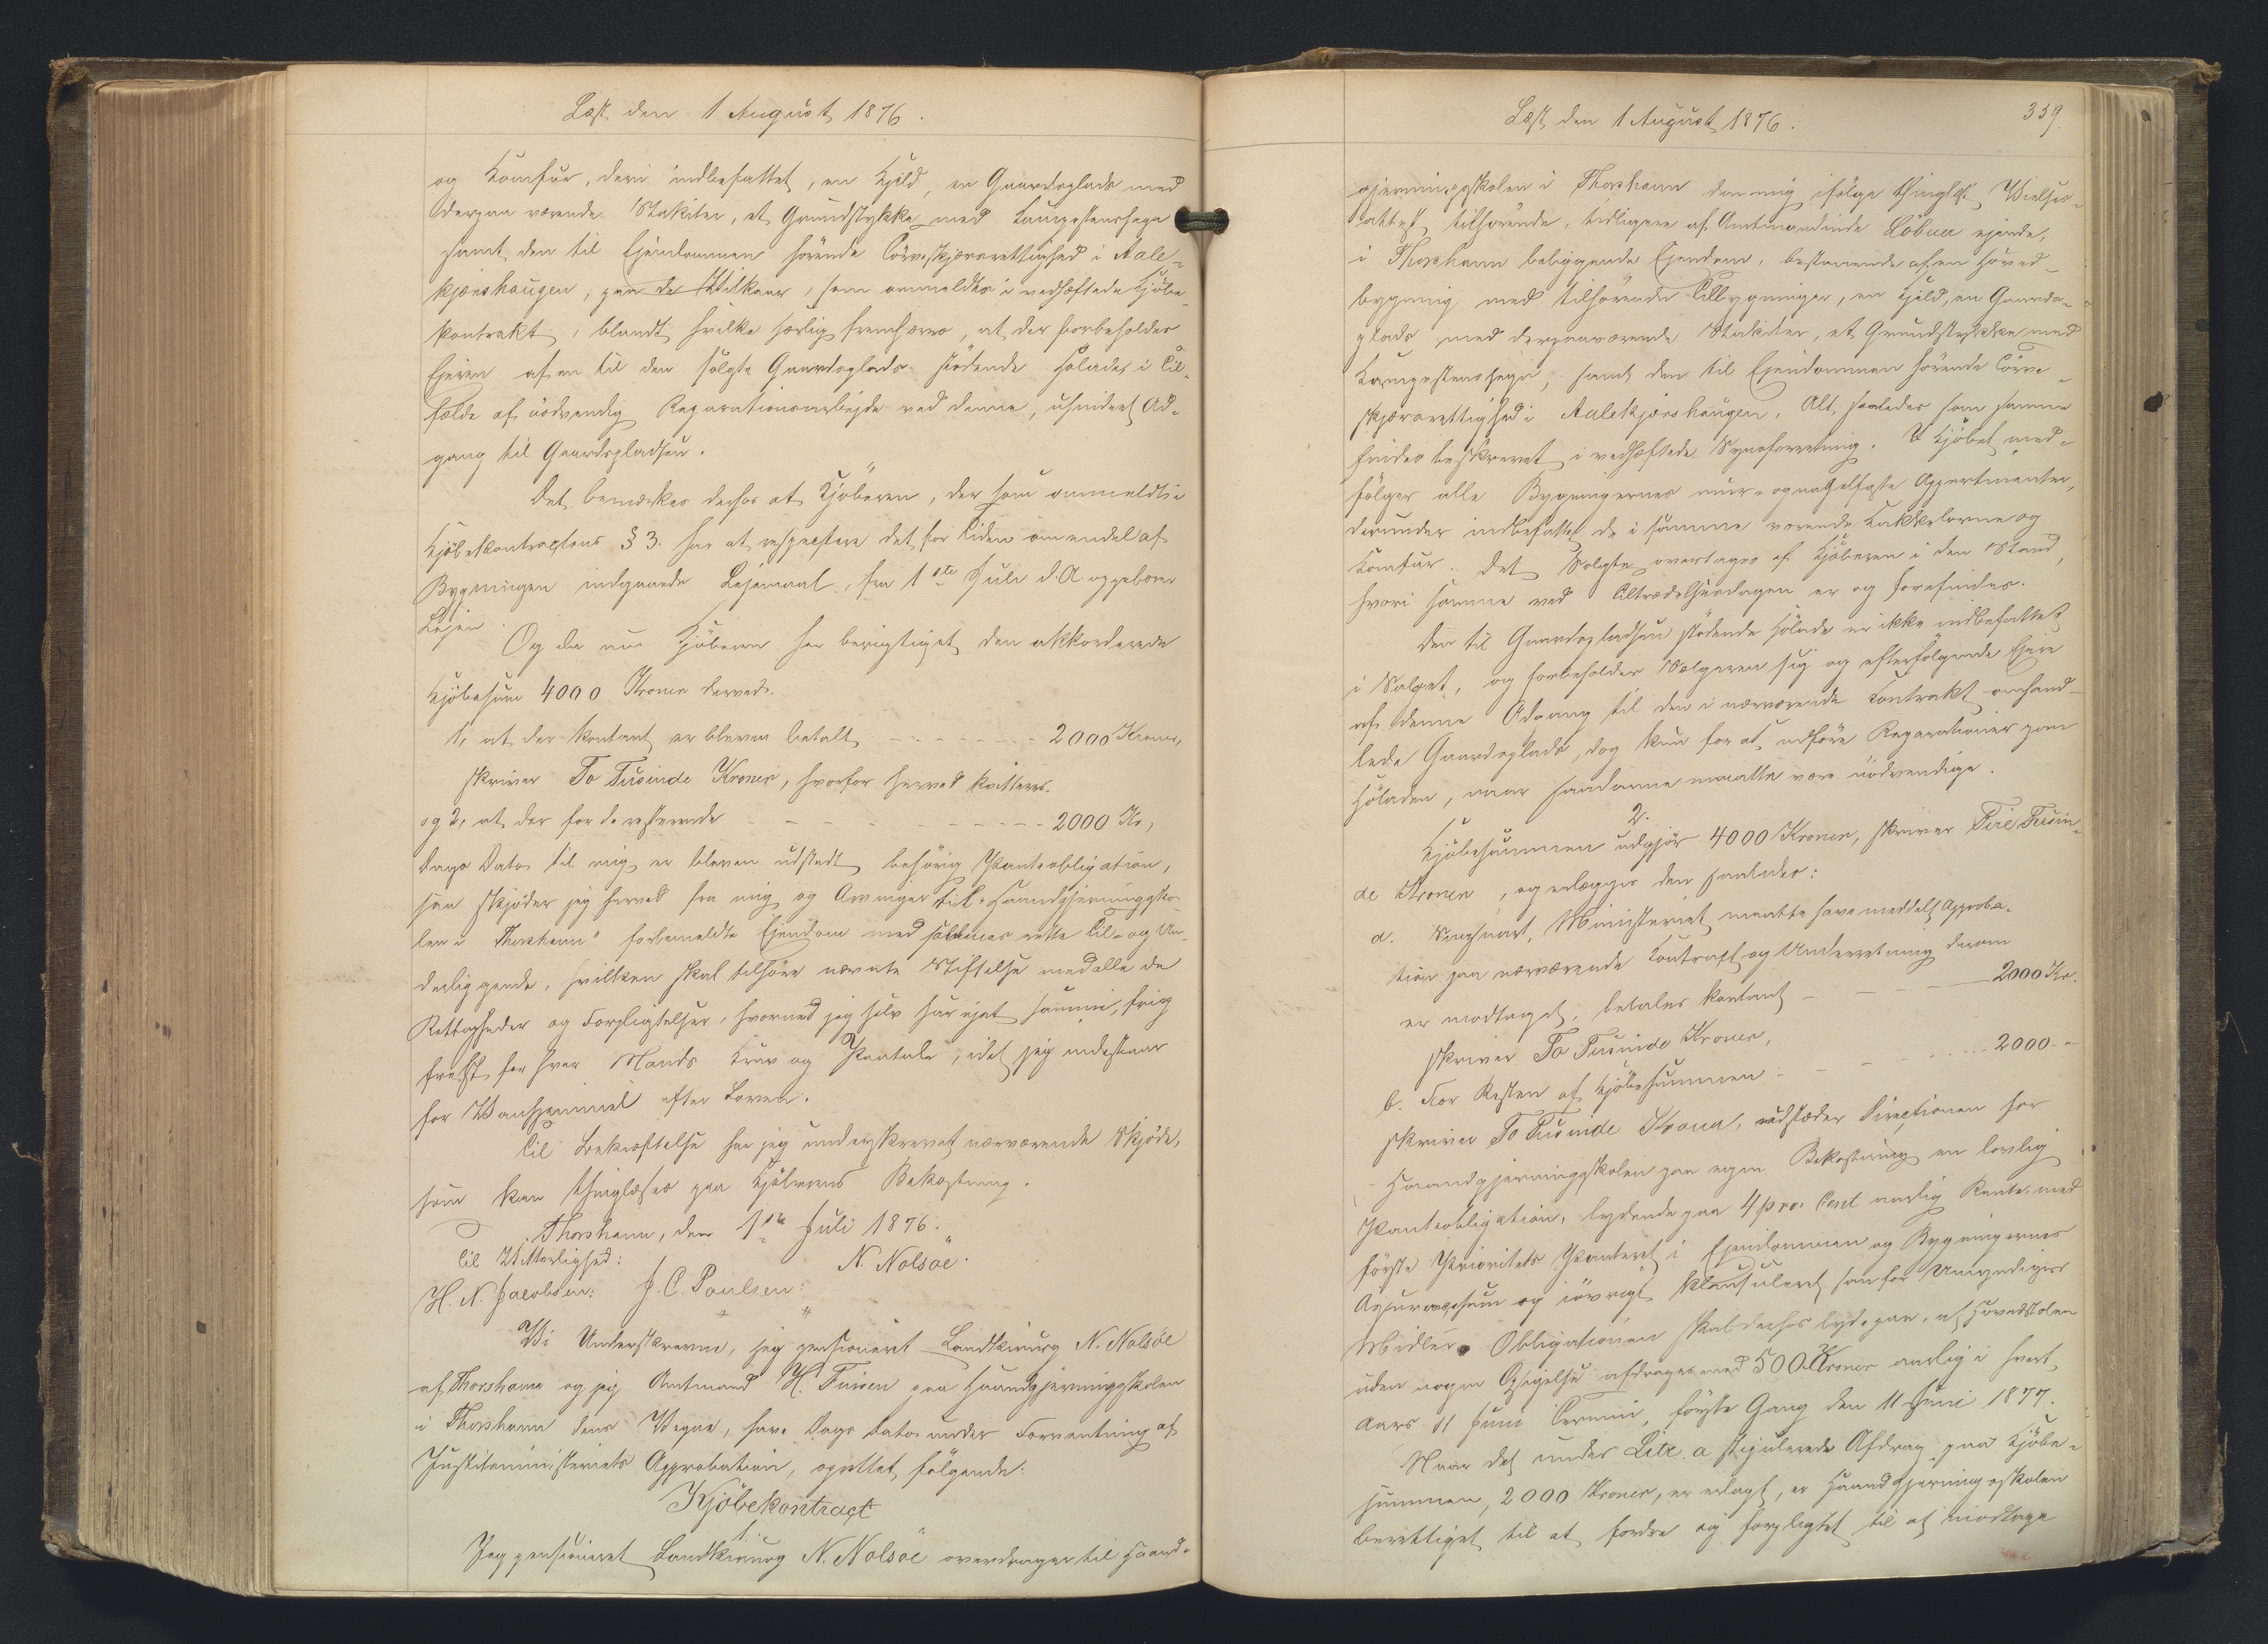 Læst den 1 August 1876.
og Komfur, deri indbefattet, en Kjeld, en Gaardsplads med
derpaa værende Stakiter, et Grundstykke med Kampestenshegn
samt den til Ejendommen hørende Törveskjærsrettighed i Aale-
kjærshaugen, paa de Vilkaar, som ommeldes i vedhæftede Kjöbe-
kontrakt, blandt hvilke særlig fremhæves, at der forbeholdes
Ejeren af en til den solgte Gaardsplads stödende Hölade, i Til-
fælde af nödvendig Reparationsarbejde ved denne, uhindret Ad-
gang til Gaardspladsen.
Det bemærkes derhos at Kjöberen, der som ommeldt i
Kjöbekontractens § 3. har at respectere det for Tiden om en del af
Bygningen indgaaede Lejemaal, fra 1ste Juli d. A. oppebærer
Lejen.
Og da nu Kjöberen har berigtiget den akkorderede
Kjöbesum 4000 Kroner derved:
1, at der kontant er bleven betalt - - - - - - - 2000 Kroner,
skriver To Tusinde Kroner, hvorfor herved kvitteres.
og 2, at der for de resterende - - - - - - - - - 2000 Kr,
Dags Dato til mig er bleven udstedt behörig Panteobligation,
saa skjöder jeg herved fra mig og Arvinger til "Haandgjerningssko-
len i Thorshavn" forbemeldte Ejendom med sammes rette Til- og Un-
derliggende, hvilken skal tilhöre nævnte Stiftelse med alle de
Rettigheder og Forpligtelser, hvormed jeg selv har ejet samme, frit og
frelst for hver Mands Krav og Paatale, idet jeg indestaar
for Vanhjemmel efter Loven.
Til Bekræftelse har jeg underskrevet nærværende Skjöde,
som kan thinglæses paa Kjöberens Bekostning.
Thorshavn, den 1ste Juli 1876.
Til Vitterlighed: N. Nolsöe.
H. N. Jacobsen: J. C. Poulsen:
Vi Underskrevne, jeg pensioneret Landkirurg N. Nolsöe
af Thorshavn og jeg Amtmand H. Finsen paa Haandgjerningsskolen
i Thorshavn dens Vegne, have Dags Dato under Forventning af
Justitsministeriets Approbation, oprettet følgende:
Kjöbekontract
1.
Jeg pensioneret Landkirurg N. Nolsöe overdrager til Haand-
Læst den 1 August 1876.
359.
gjerningsskolen i Thorshavn den mig ifölge thinglæst
attest tilhörende, tidligere af Amtmandinde Löbner ejende,
i Thorshavn beliggende Ejendom, bestaaende af en Hoved-
bygning med tilhörende Tilbygninger, en Kjeld, en Gaards-
plads med derpaaværende Stakiter, et Grundstykke med
Kampestenshegn, samt den til Ejendommen hörende Törve-
skjærsrettighed i Aalekjærshaugen, Alt saaledes som samme
findes beskrevet i vedhæftede Synsforretning. I Kjöbet med-
fölger alle Bygningernes mur- og nagelfaste Appertinentier,
derunder indbefattet de i samme værende Kakkelovne og
Komfur. Det Solgte overtages af Kjöberen i den Stand,
hvori samme ved Tiltrædelsesdagen er og forefindes.
Den til Gaardspladsen stödende Hölade er ikke indbefattet
i Salget, og forbeholder Sælgeren sig og efterfölgende Ejere
af denne Adgang til den i nærværende Kontrakt omhand-
lede Gaardsplads, dog kun for at udföre Reparationer paa
Höladen, naar saadanne maatte være nödvendige.
2.
Kjöbesummen udgjör 4000 Kroner, skriver Fire Tusin-
de Kroner, og erlægges den saaledes:
a. Saasnart Ministeriet maatte have meddelt Approba-
tion paa nærværende Contract og Underretning derom
er modtaget, betales kontant - - - - 2000 Kr.
skriver To Tusinde Kroner,
b. For Resten af Kjöbesummen - - - - 2000 - "
skriver To Tusinde Kroner, udsteder Directionen for
Haandgjerningsskolen paa egen Bekostning en lovlig
Panteobligation, lydende paa 4 pro Cent aarlig Rente med
förste Prioritets Panteret i Ejendommen og Bygningernes
Assurancesum og iövrigt klausuleret som for Umyndiges
Midler. Obligationen skal derhos lyde paa, at Hovedstolen
uden nogen Opsigelse afdrages med 500 Kroner aarlig i hvert
Aars 11 Juni Termin, förste Gang den 11 Juni 1877.
Naar det under Litr. a stipulerede Afdrag paa Kjöbe-
summen, 2000 Kroner, er erlagt, er Haandgjerningsskolen
berettiget til at fordre og forpligtet til at modtage